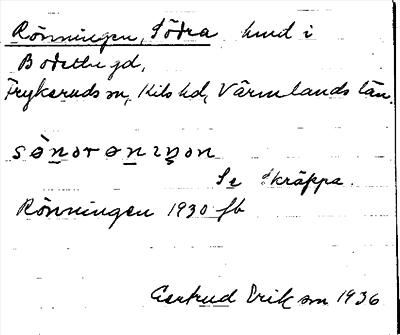 Rönningen, Södra hmd i
gd,
Frykeruds sn, Kils hd, Värmlands län.
Se Skräppa.
Rönningen 1930 fb
Gertrud Eriksson 1936